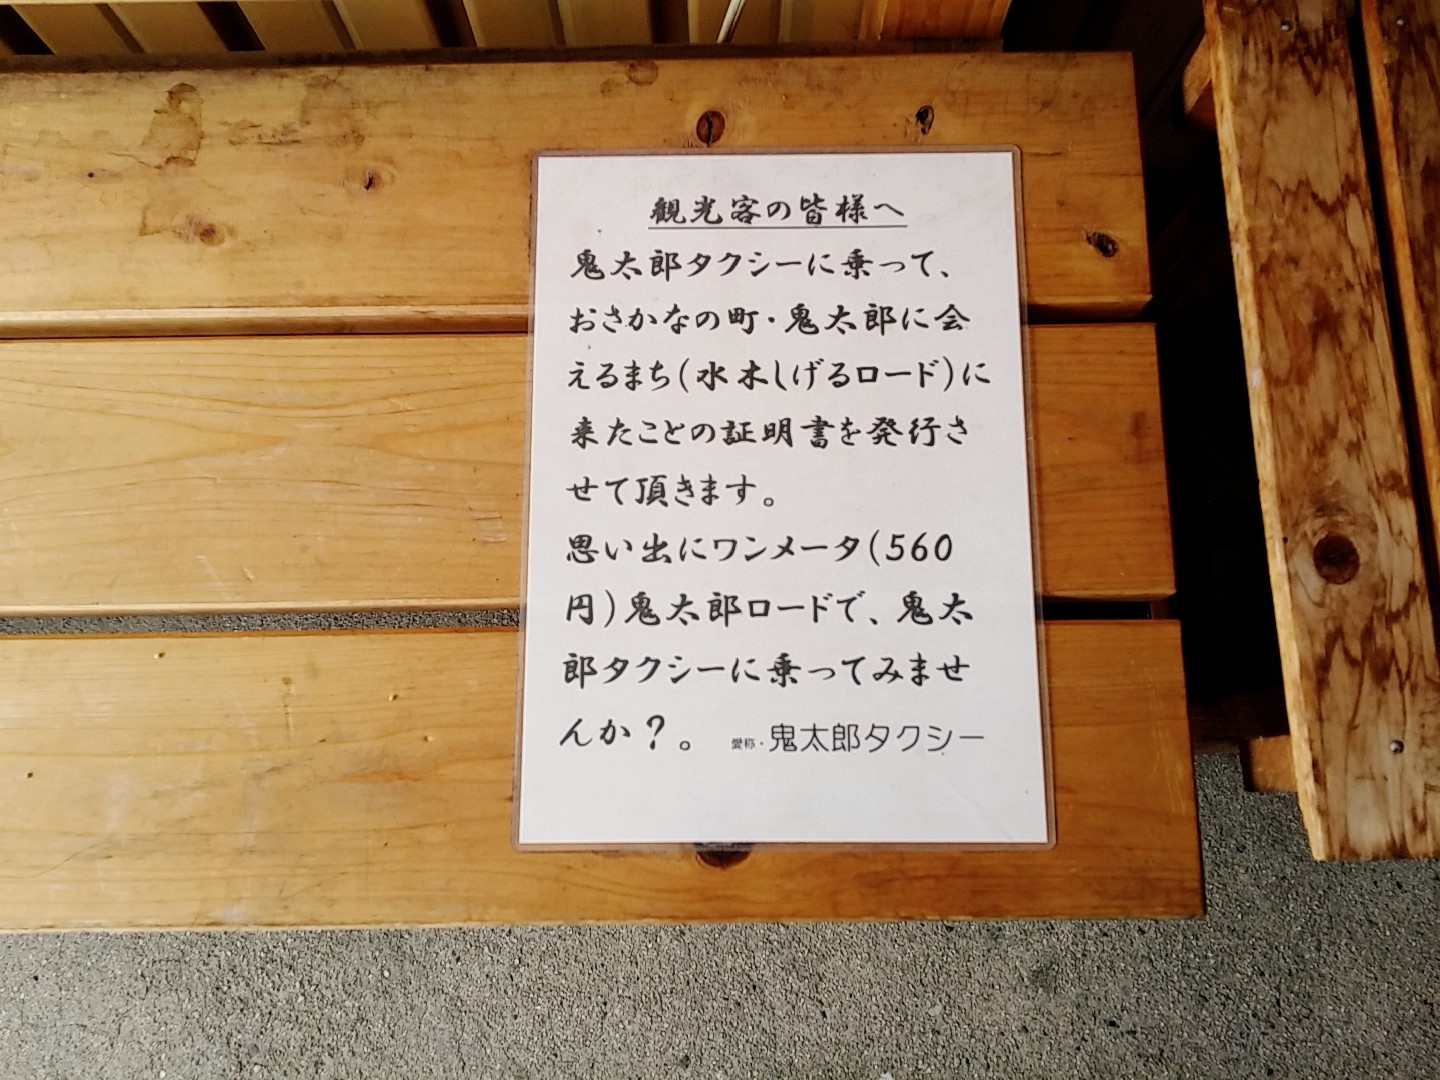 観光客の皆様へ
鬼太郎タクシーに乗って、
おさかなの町・鬼太郎に会
えるまち(水木しげるロード)に
来たことの証明書を発行さ
せて頂きます。
思い出にワンメータ(560
円)鬼太郎ロードで、鬼太
郎タクシーに乗ってみませ
んか？。 愛称・鬼太郎タクシー